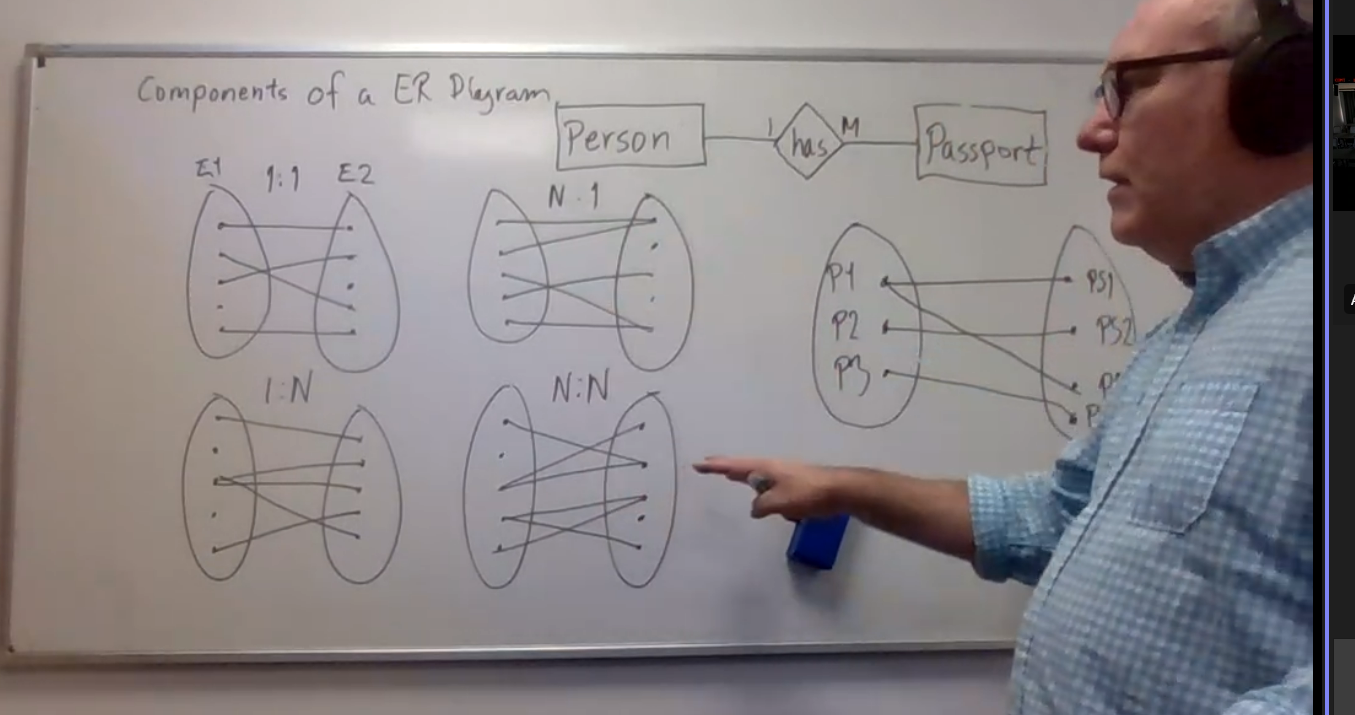 Components of a ER DIagram
Person
1
has
M
Passport
E1
1:1
E2
N.1
P1
P2
P3
PS1
PS2
1:N
N:N